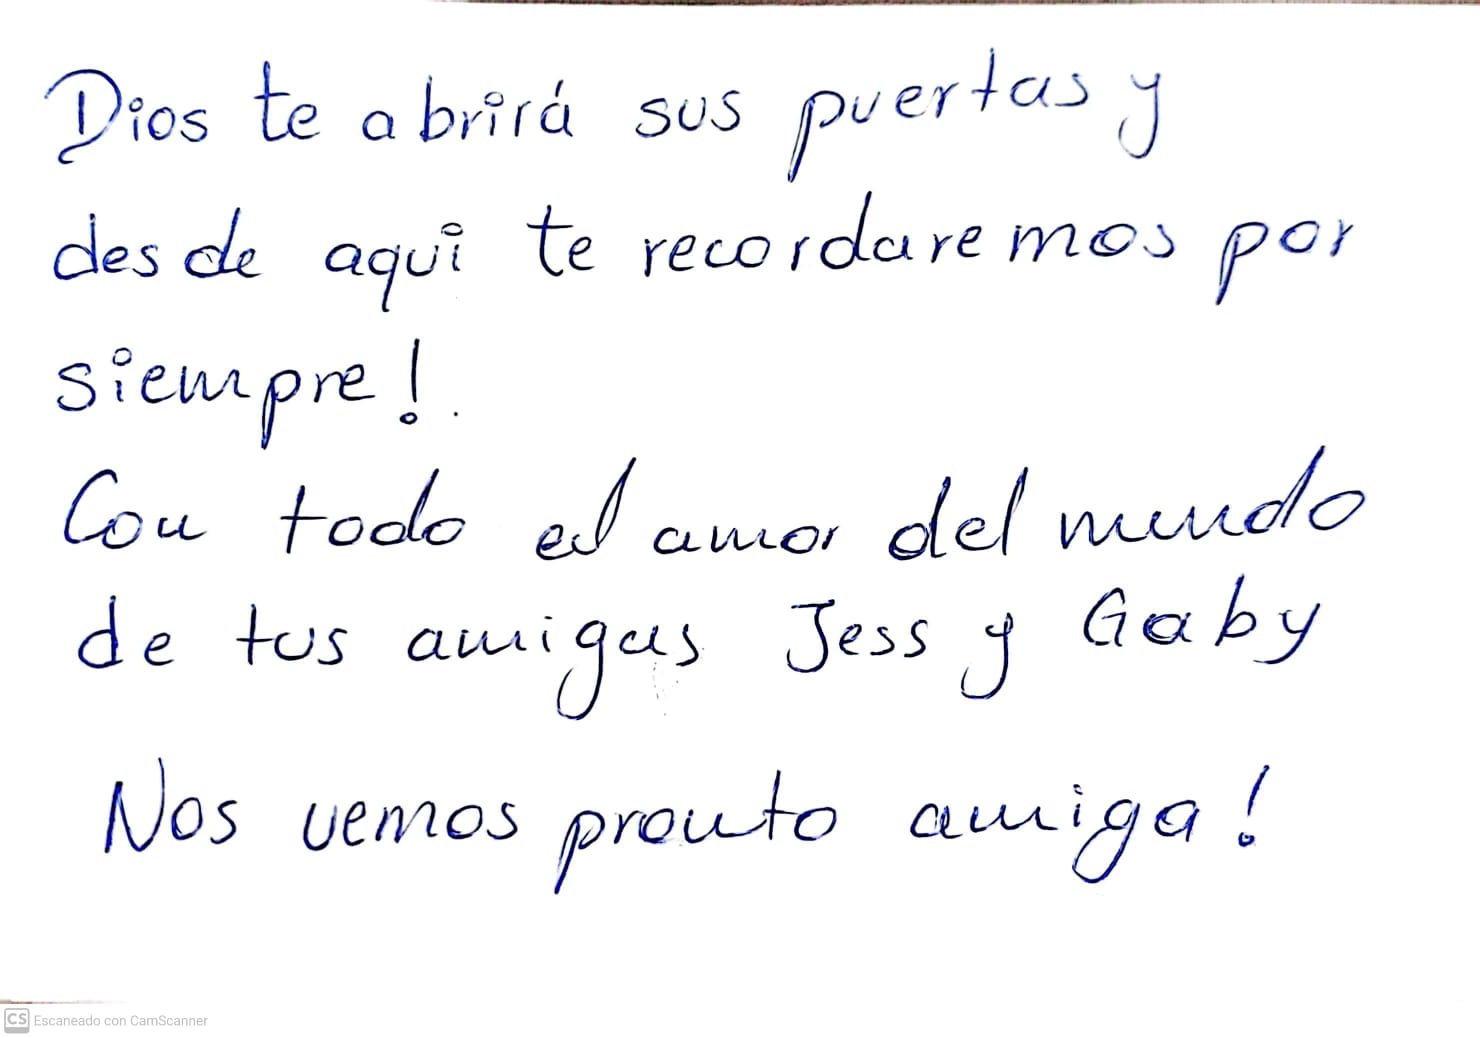 Dios te abrirá sus puertas y
desde aqui te recordaremos por
siempre!.
Con todo el amor del mundo
de tus amigas Jess y Gaby
Nos vemos pronto amiga!
CS Escaneado con CamScanner